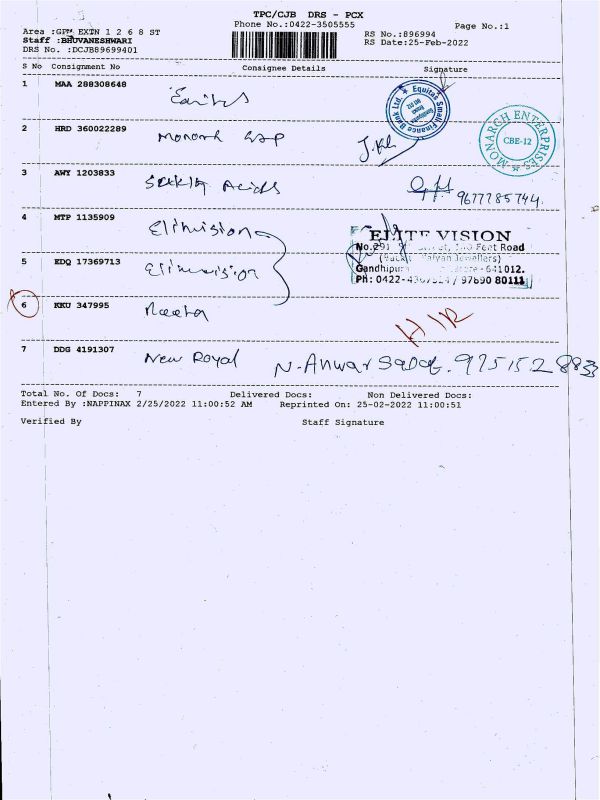 TPC/CJB DRS - PCX
Phone No.:0422-3505555 Page No.:1
Area :GPM EXTN 1 2 6 8 ST RS No.:896994
Staff :BHUVANESHWARI RS Date:25-Feb-2022
DRS No. :DCJB89699401
S No Consignment No Consignee Details Signature
1 MAA 288308648
Equitas Small Finance Bank Ltd.
2 HRD 360022289 Monarh
MONARCH ENTERPRISES
CBE-12
3 AWY 1203833 Sakthi Acids 9677785744.
4 MTP 1135909 Elitevision
ELITE VISION
No.291 Feet Road
5 EDQ 17369713 Elitevision
Gandhipuram 641012.
Ph: 0422- / 97890 80111
6 KKU 347995
7 DDG 4191307 New Royal N. Anwar Sadaq. 9751528833
Total No. Of Docs: 7 Delivered Docs: Non Delivered Docs:
Entered By :NAPPINAX 2/25/2022 11:00:52 AM Reprinted On: 25-02-2022 11:00:51
Verified By Staff Signature